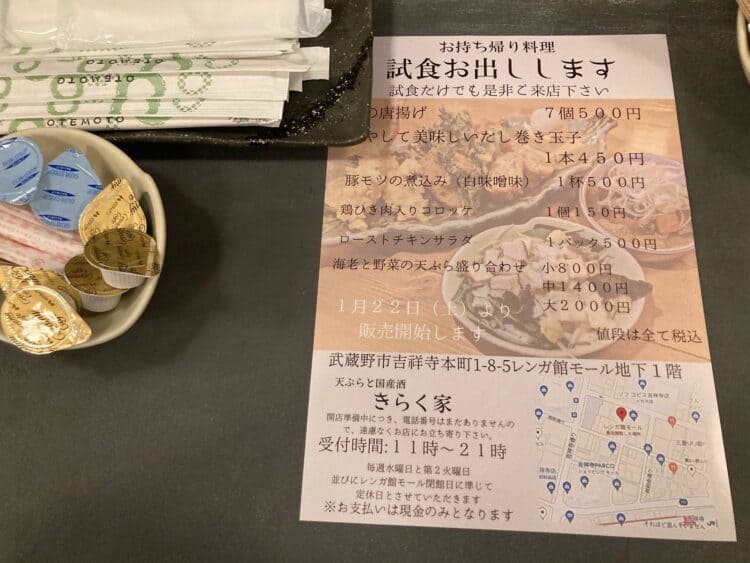 OTEMOTO
OTEMOTO
お持ち帰り料理
試食お出しします
試食だけでも是非ご来店下さい
の唐揚げ 7個500円
やして美味しいだし巻き玉子
1本450円
豚モツの煮込み(白味噌味) 1杯500円
鶏ひき肉入りコロッケ 1個150円
ローストチキンサラダ 1パック500円
海老と野菜の天ぷら盛り合わせ 小800円
中1400円
大2000円
1月22日(土)より
販売開始します
値段は全て税込
武蔵野市吉祥寺本町1-8-5レンガ館モール地下1階
天ぷらと国産酒
きらく家
開店準備中につき、電話番号はまだありませんの
で、遠慮なくお店にお立ち寄り下さい。
受付時間:11時~21時
毎週水曜日と第2火曜日
並びにレンガ館モール閉館日に準じて
定休日とさせていただきます
※お支払いは現金のみとなります
コピス吉祥寺
レンガ館モール
吉祥寺PARCO
ショッピングモール
吉祥寺